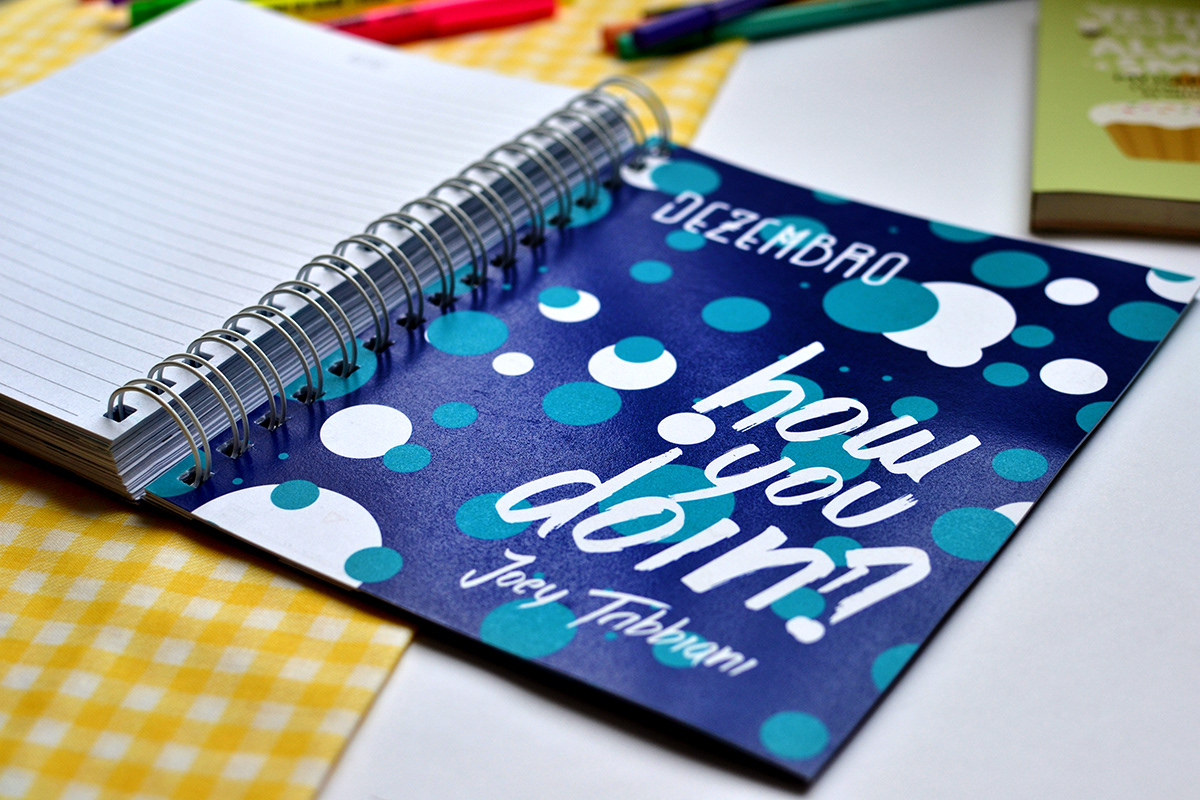 DEZEMBRO
how
you
doin'?
Joey Tribbiani